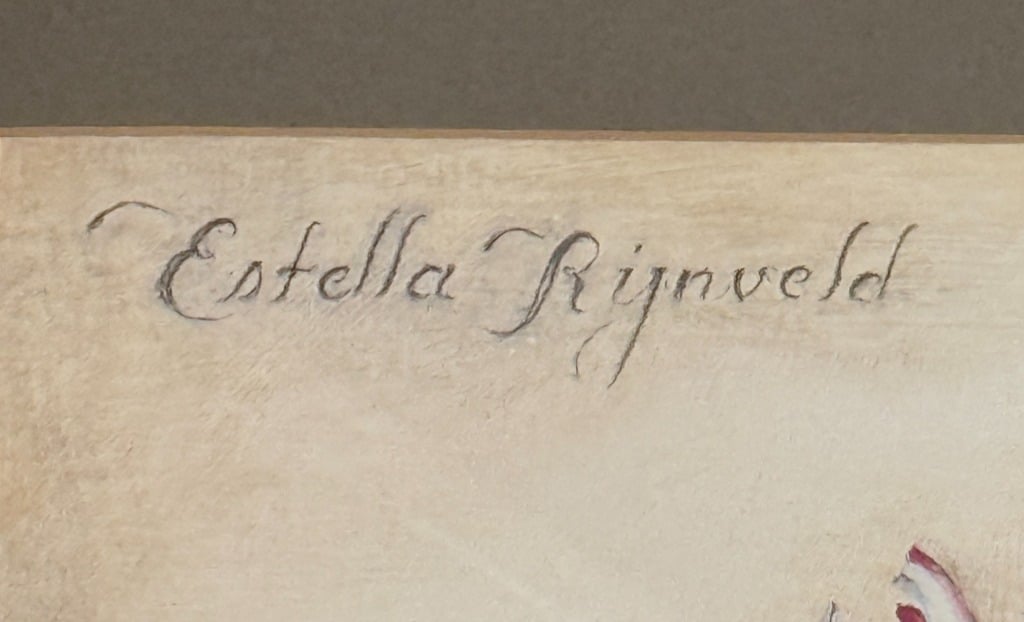 Estella Rijnveld